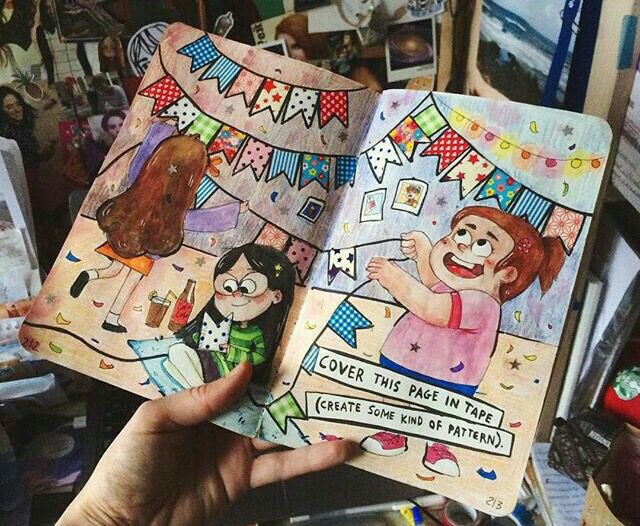 COVER THIS PAGE IN TAPE
(CREATE SOME KIND OF PATTERN).
212
213